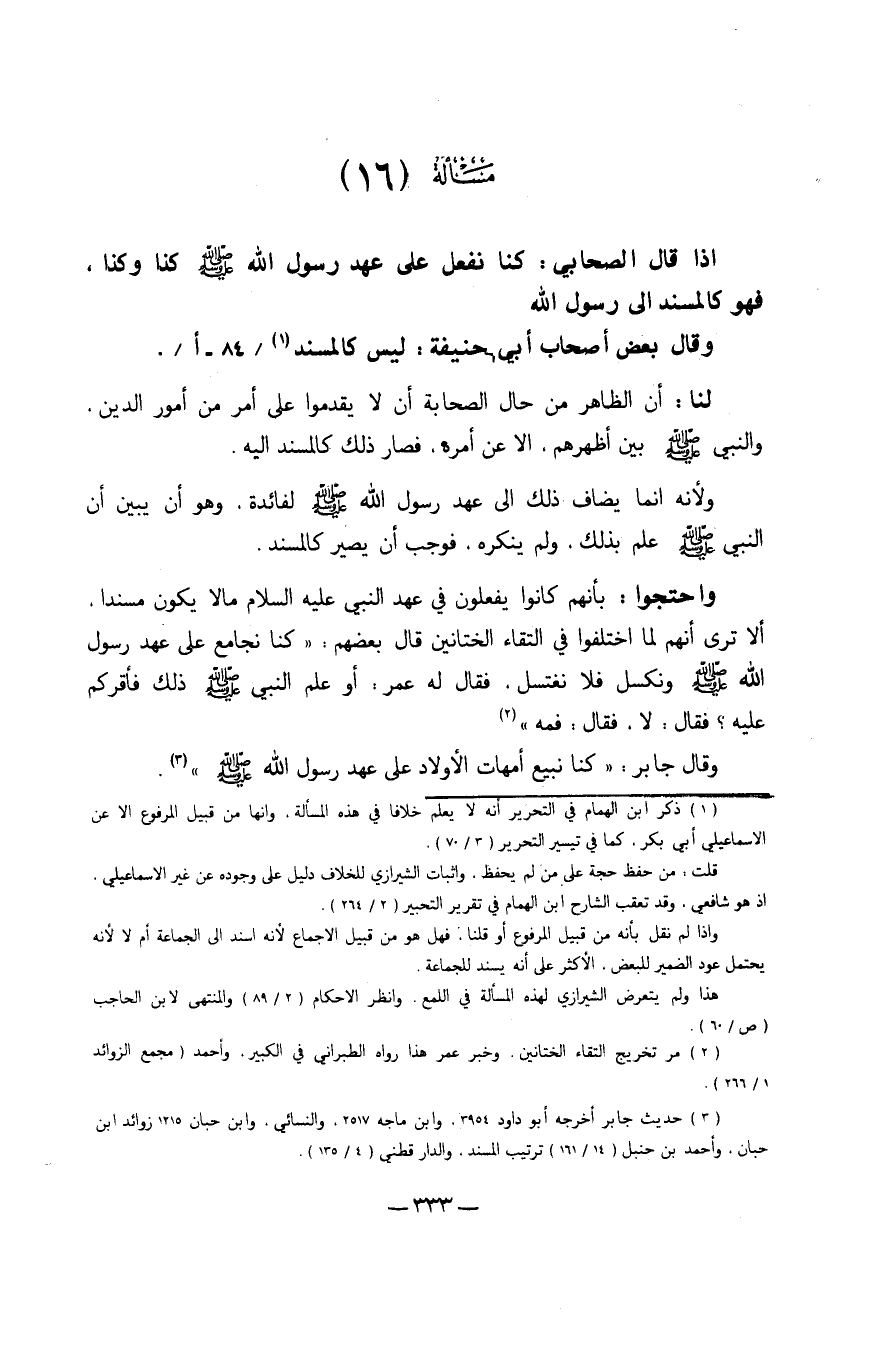 مسألة (١٦)
اذا قال الصحابي : كنا نفعل على عهد رسول الله ﷺ كنا وكنا ،
فهو كالمسند الى رسول الله
وقال بعض أصحاب أبي حنيفة : ليس كالمسند(١) / ٨٤ ـ أ / .
لنا : أن الظاهر من حال الصحابة أن لا يقدموا على أمر من أمور الدين ،
والنبي ﷺ بين أظهرهم ، الا عن أمره ، فصار ذلك كالمسند اليه .
ولأنه انما يضاف ذلك الى عهد رسول الله ﷺ لفائدة ، وهو أن يبين أن
النبي ﷺ علم بذلك ، ولم ينكره ، فوجب أن يصير كالمسند .
واحتجوا : بأنهم كانوا يفعلون في عهد النبي عليه السلام مالا يكون مسندا ،
ألا ترى أنهم لما اختلفوا في التقاء الختانين قال بعضهم : « كنا نجامع على عهد رسول
الله ﷺ ونكسل فلا نغتسل ، فقال له عمر : أو علم النبي ﷺ ذلك فأقركم
عليه ؟ فقال : لا ، فقال : فمه »(٢)
وقال جابر : « كنا نبيع أمهات الأولاد على عهد رسول الله ﷺ »(٣) .
( ١ ) ذكر ابن الهمام في التحرير أنه لا يعلم خلافا في هذه المسألة ، وانها من قبيل المرفوع الا عن
الاسماعيلي أبي بكر ، كما في تيسير التحرير ( ٣ / ٧٠ ) .
قلت : من حفظ حجة على من لم يحفظ ، واثبات الشيرازي للخلاف دليل على وجوده عن غير الاسماعيلي ،
اذ هو شافعي ، وقد تعقب الشارح ابن الهمام في تقرير التحبير ( ٢ / ٢٦٤ ) .
واذا لم نقل بأنه من قبيل المرفوع أو قلنا : فهل هو من قبيل الاجماع لأنه اسند الى الجماعة أم لا لأنه
يحتمل عود الضمير للبعض ، الأكثر على أنه يسند للجماعة .
هذا ولم يتعرض الشيرازي لهذه المسألة في اللمع . وانظر الاحكام ( ٢ / ٨٩ ) والمنتهى لابن الحاجب
( ص / ٦٠ ) .
( ٢ ) مر تخريج التقاء الختانين . وخبر عمر هذا رواه الطبراني في الكبير ، وأحمد ( مجمع الزوائد
١ / ٢٦٦ ) .
( ٣ ) حديث جابر أخرجه أبو داود ٣٩٥٤ ، وابن ماجه ٢٥١٧ ، والنسائي ، وابن حبان ١٢١٥ زوائد ابن
حبان ، وأحمد بن حنبل ( ١٤ / ١٦١ ) ترتيب المسند ، والدار قطني ( ٤ / ١٣٥ ) .
— ٣٣٣ —